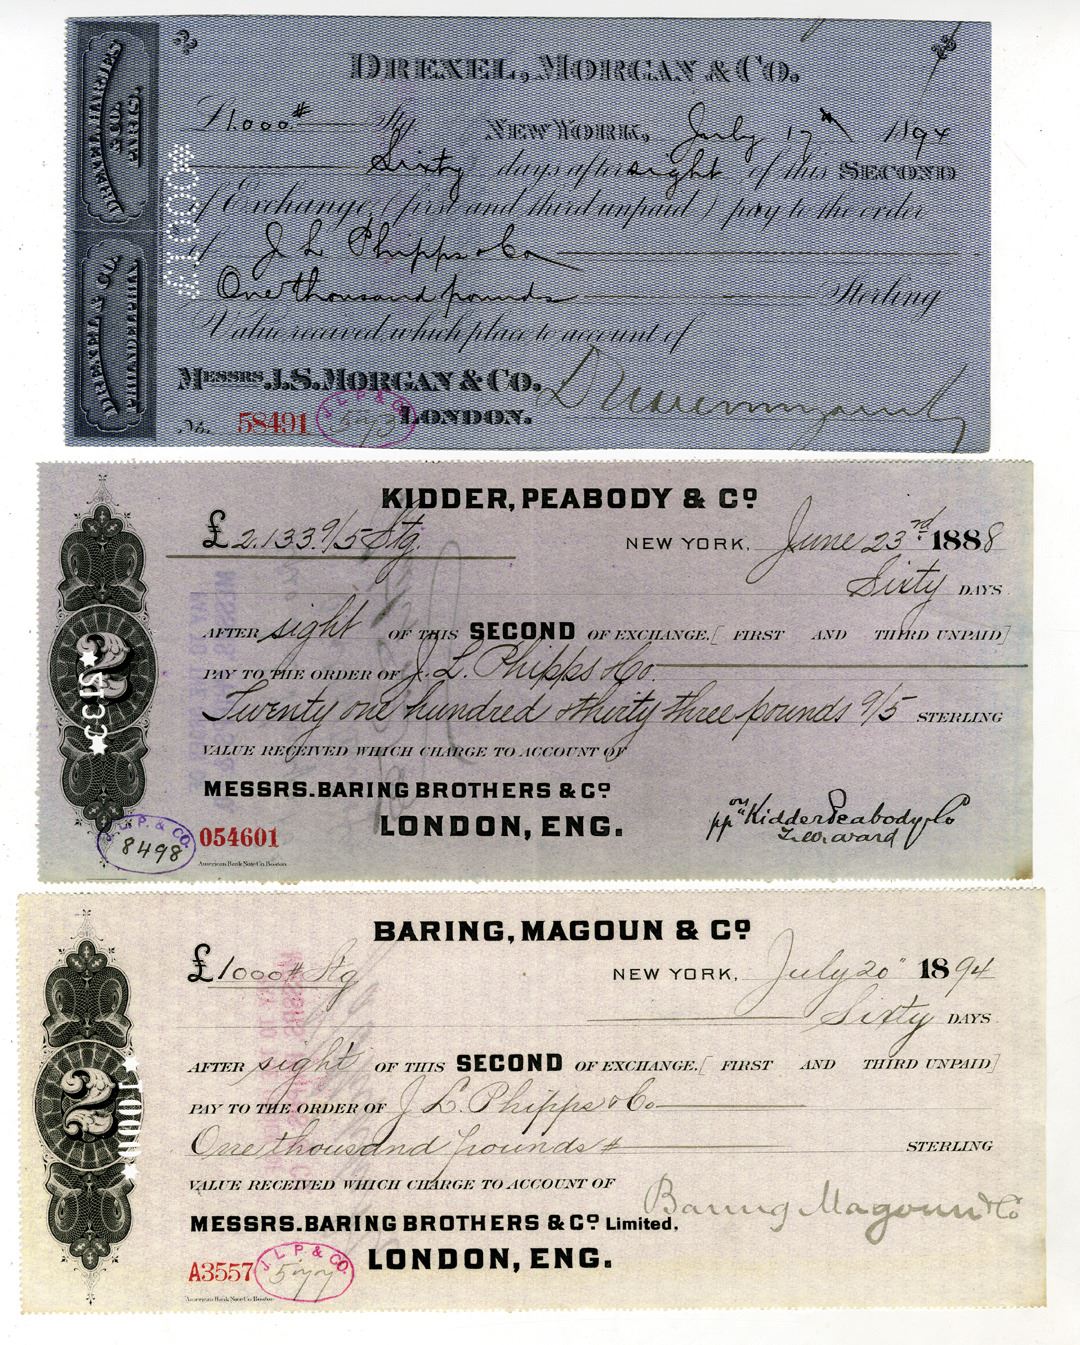 DREXEL, HARJES & CO. PARIS.
DREXEL & CO. PHILADELPHIA.
DREXEL, MORGAN & CO.
£1.000.# Stg
NEW YORK, July 17th 1894
Sixty days after sight of this SECOND
of Exchange, (first and third unpaid) pay to the order
of J L Phipps & Co
One thousand pounds Sterling
Value received, which place to account of
MESSRS. J.S. MORGAN & CO.
LONDON.
No. 58491
J L P & CO
£1000
KIDDER, PEABODY & CO
£2.133.9/5 Stg.
NEW YORK, June 23rd 1888
Sixty DAYS
AFTER sight OF THIS SECOND OF EXCHANGE.[ FIRST AND THIRD UNPAID]
PAY TO THE ORDER OF J. L. Phipps & Co.
Twenty one hundred & thirty three pounds 9/5 STERLING
VALUE RECEIVED WHICH CHARGE TO ACCOUNT OF
MESSRS. BARING BROTHERS & CO
LONDON, ENG.
pp Kidder Peabody & Co
2
*2133*
J. L. P. & CO.
8498
054601
American Bank Note Co. Boston.
BARING, MAGOUN & CO
£1000# Stg
NEW YORK, July 20" 1894
Sixty DAYS
AFTER sight OF THIS SECOND OF EXCHANGE.[ FIRST AND THIRD UNPAID]
PAY TO THE ORDER OF J L. Phipps & Co
One thousand pounds # STERLING
VALUE RECEIVED WHICH CHARGE TO ACCOUNT OF
Baring Magoun & Co
MESSRS. BARING BROTHERS & CO Limited,
LONDON, ENG.
2
*1000*
A3557
J L P & CO.
American Bank Note Co. Boston